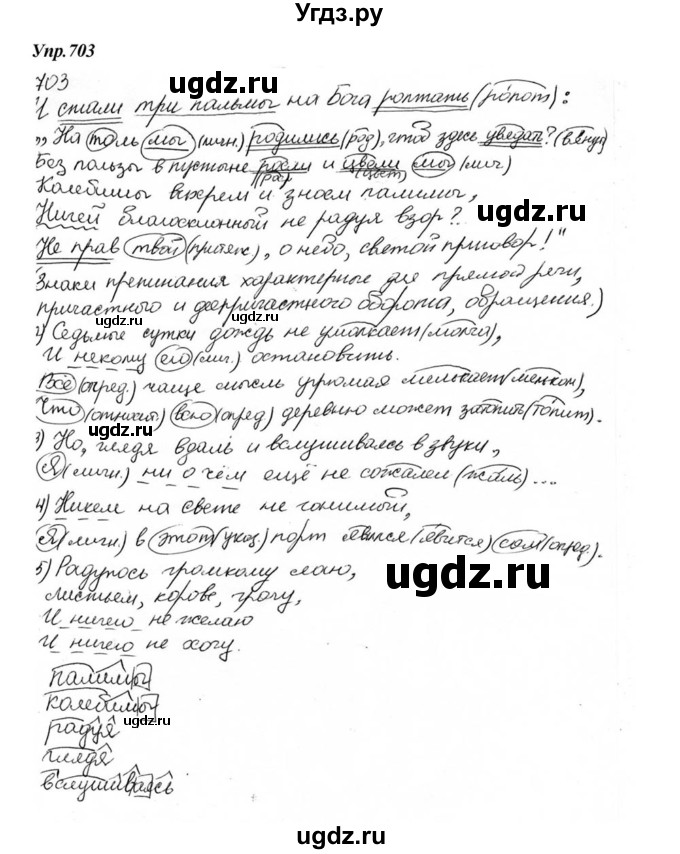 Угдз.ру
Упр.703
703
И стали три пальмы на Бога роптать (ро́пот):
„На толь мы (личн.) родились (род), чтоб здесь увядать? (вянул)
Без пользы в пустыне росли и цвели мы (лич.)
(рас) (цвет)
Колебимы вихрем и зноем палимы,
Ничей благосклонный не радуя взор?
Не прав твой (притяж), о небо, святой приговор!"
Знаки препинания характерные для прямой речи,
причастного и деепричастного оборота, обращения.)
2) Седьмые сутки дождь не умолкает (молча),
И некому его (лич.) остановить.
Всё (опред.) чаще мысль угрюмая мелькает (мельком),
Что (относит) всю (опред) деревню может затопить (то́пит).
3) Но, глядя вдаль и вслушиваясь в звуки,
Я (личн.) ни о чём ещё не сожалел (жаль) ....
4) Никем на свете не гонимый,
Я (личн.) в этот (указ.) порт явился (явится) сам (опред).
5) Радуюсь громкому лаю,
листьям, корове, грачу,
И ничего не желаю
И ничего не хочу.
палимы
колебимы
радуя
глядя
вслушиваясь
ugdz.ru
ugdz.ru
ugdz.ru
ugdz.ru
ugdz.ru
ugdz.ru
ugdz.ru
ugdz.ru
ugdz.ru
ugdz.ru
ugdz.ru
ugdz.ru